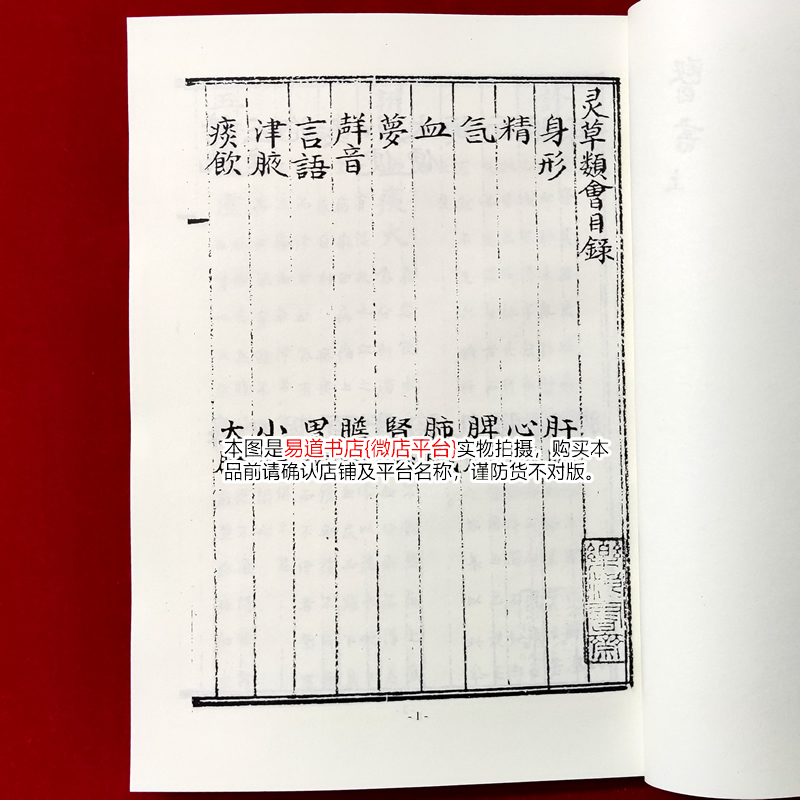 灵草類會目錄
身形
精
氣
血
夢
聲音
言語
津液
痰飲
肝
心
脾
肺
腎
膽
胃
小
大
本图是易道书店{微店平台}实物拍摄，购买本
品前请确认店铺及平台名称，谨防货不对版。
- 1 -